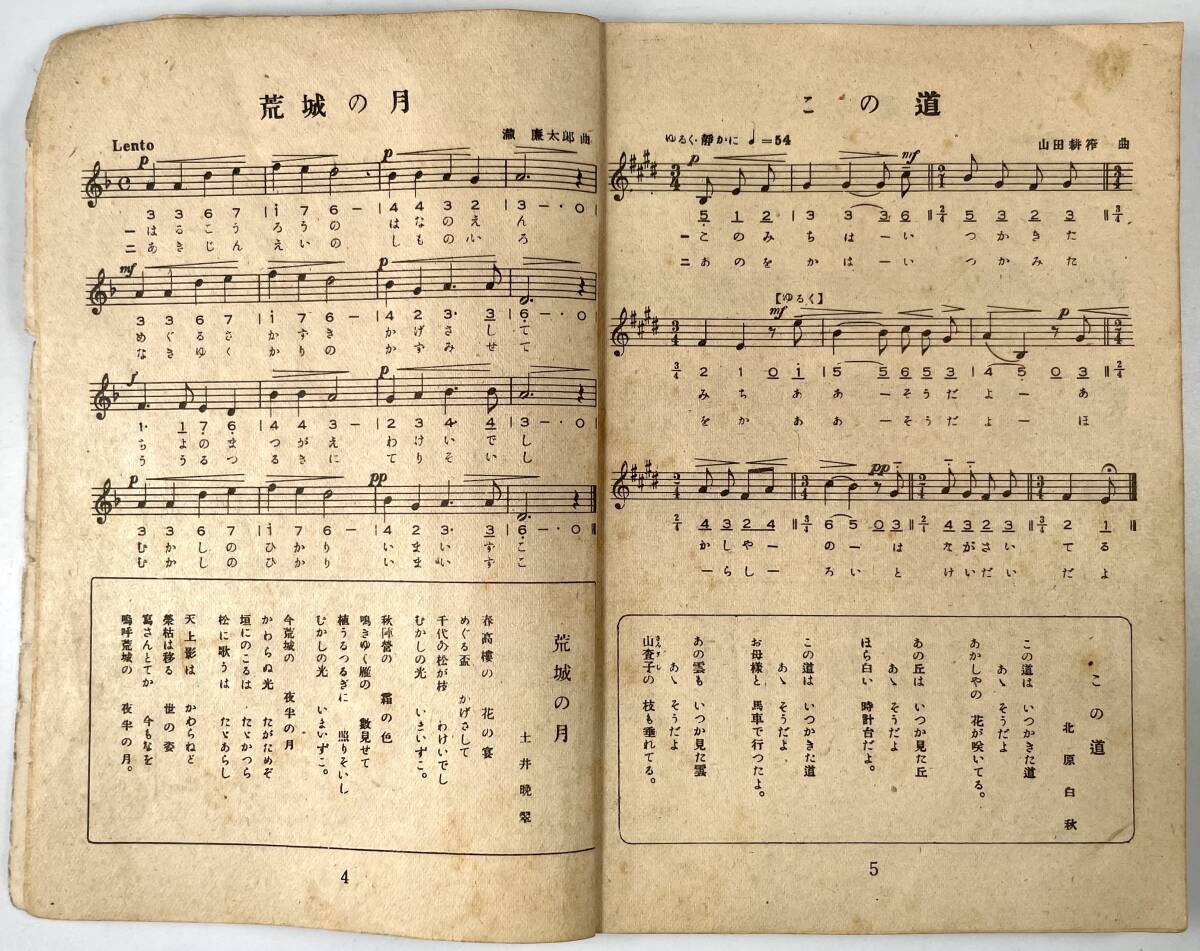 荒城の月
Lento
瀧 廉太郎 曲
p
p
3 3 6 7 | i 7 6 － | 4 4 3 2 | 3 － · 0 |
一 はるこうろうの はなのえん
二 あきじんえいの しものいろ
mf
p
3 3 6 7 | i 7 6 － | 4 2 3· 3 | 6 － · 0 |
めぐるさかずき かげさして
なきゆくかりの かずみせて
f
p
1· 1 7 6 | 4 4 3 － | 2 3 4· 4 | 3 － · 0 |
ちよのまつがえ わけいでし
ううるつるぎに てりそいし
p
pp
3 3 6 7 | i 7 6 － | 4 2 3· 3 | 6 － · 0 ||
むかしのひかり いまいずこ
むかしのひかり いまいずこ
荒城の月
土井晩翠
春高樓の 花の宴
めぐる盃 かげさして
千代の松が枝 わけいでし
むかしの光 いまいずこ。
秋陣營の 霜の色
鳴きゆく雁の 數見せて
植うるつるぎに 照りそいし
むかしの光 いまいずこ。
今荒城の 夜半の月
かわらぬ光 たがためぞ
垣にのこるは たゞかつら
松に歌うは たゞあらし
天上影は かわらねど
榮枯は移る 世の姿
寫さんとてか 今もなを
嗚呼荒城の 夜半の月。
4
この道
ゆるく·靜かに ♩=54
山田耕筰 曲
p
mf
3/4 5 1 2 | 3 3 3 6 || 2/4 5 3 2 3 || 3/4
一 このみちはーい つかきた
二 あのをかはーい つかみた
【ゆるく】
mf
p
3/4 2 1 0 i | 5 5 6 5 3 | 4 5 0 3 || 2/4
みち ああーそうだよー あ
をか ああーそうだよー ほ
pp
2/4 4 3 2 4 || 3/4 6 5 0 3 || 2/4 4 3 2 3 || 3/4 2 1
かしやー のーは ながさい てる
ーらしー ろいと けいだい だよ
この道
北原白秋
この道は いつかきた道
あゝ そうだよ
あかしやの 花が咲いてる。
あの丘は いつか見た丘
あゝ そうだよ
ほら白い 時計台だよ。
この道は いつかきた道
あゝ そうだよ
お母様と 馬車で行つたよ。
あの雲も いつか見た雲
あゝ そうだよ
山査子の 枝も垂れてる。
さんざし
5